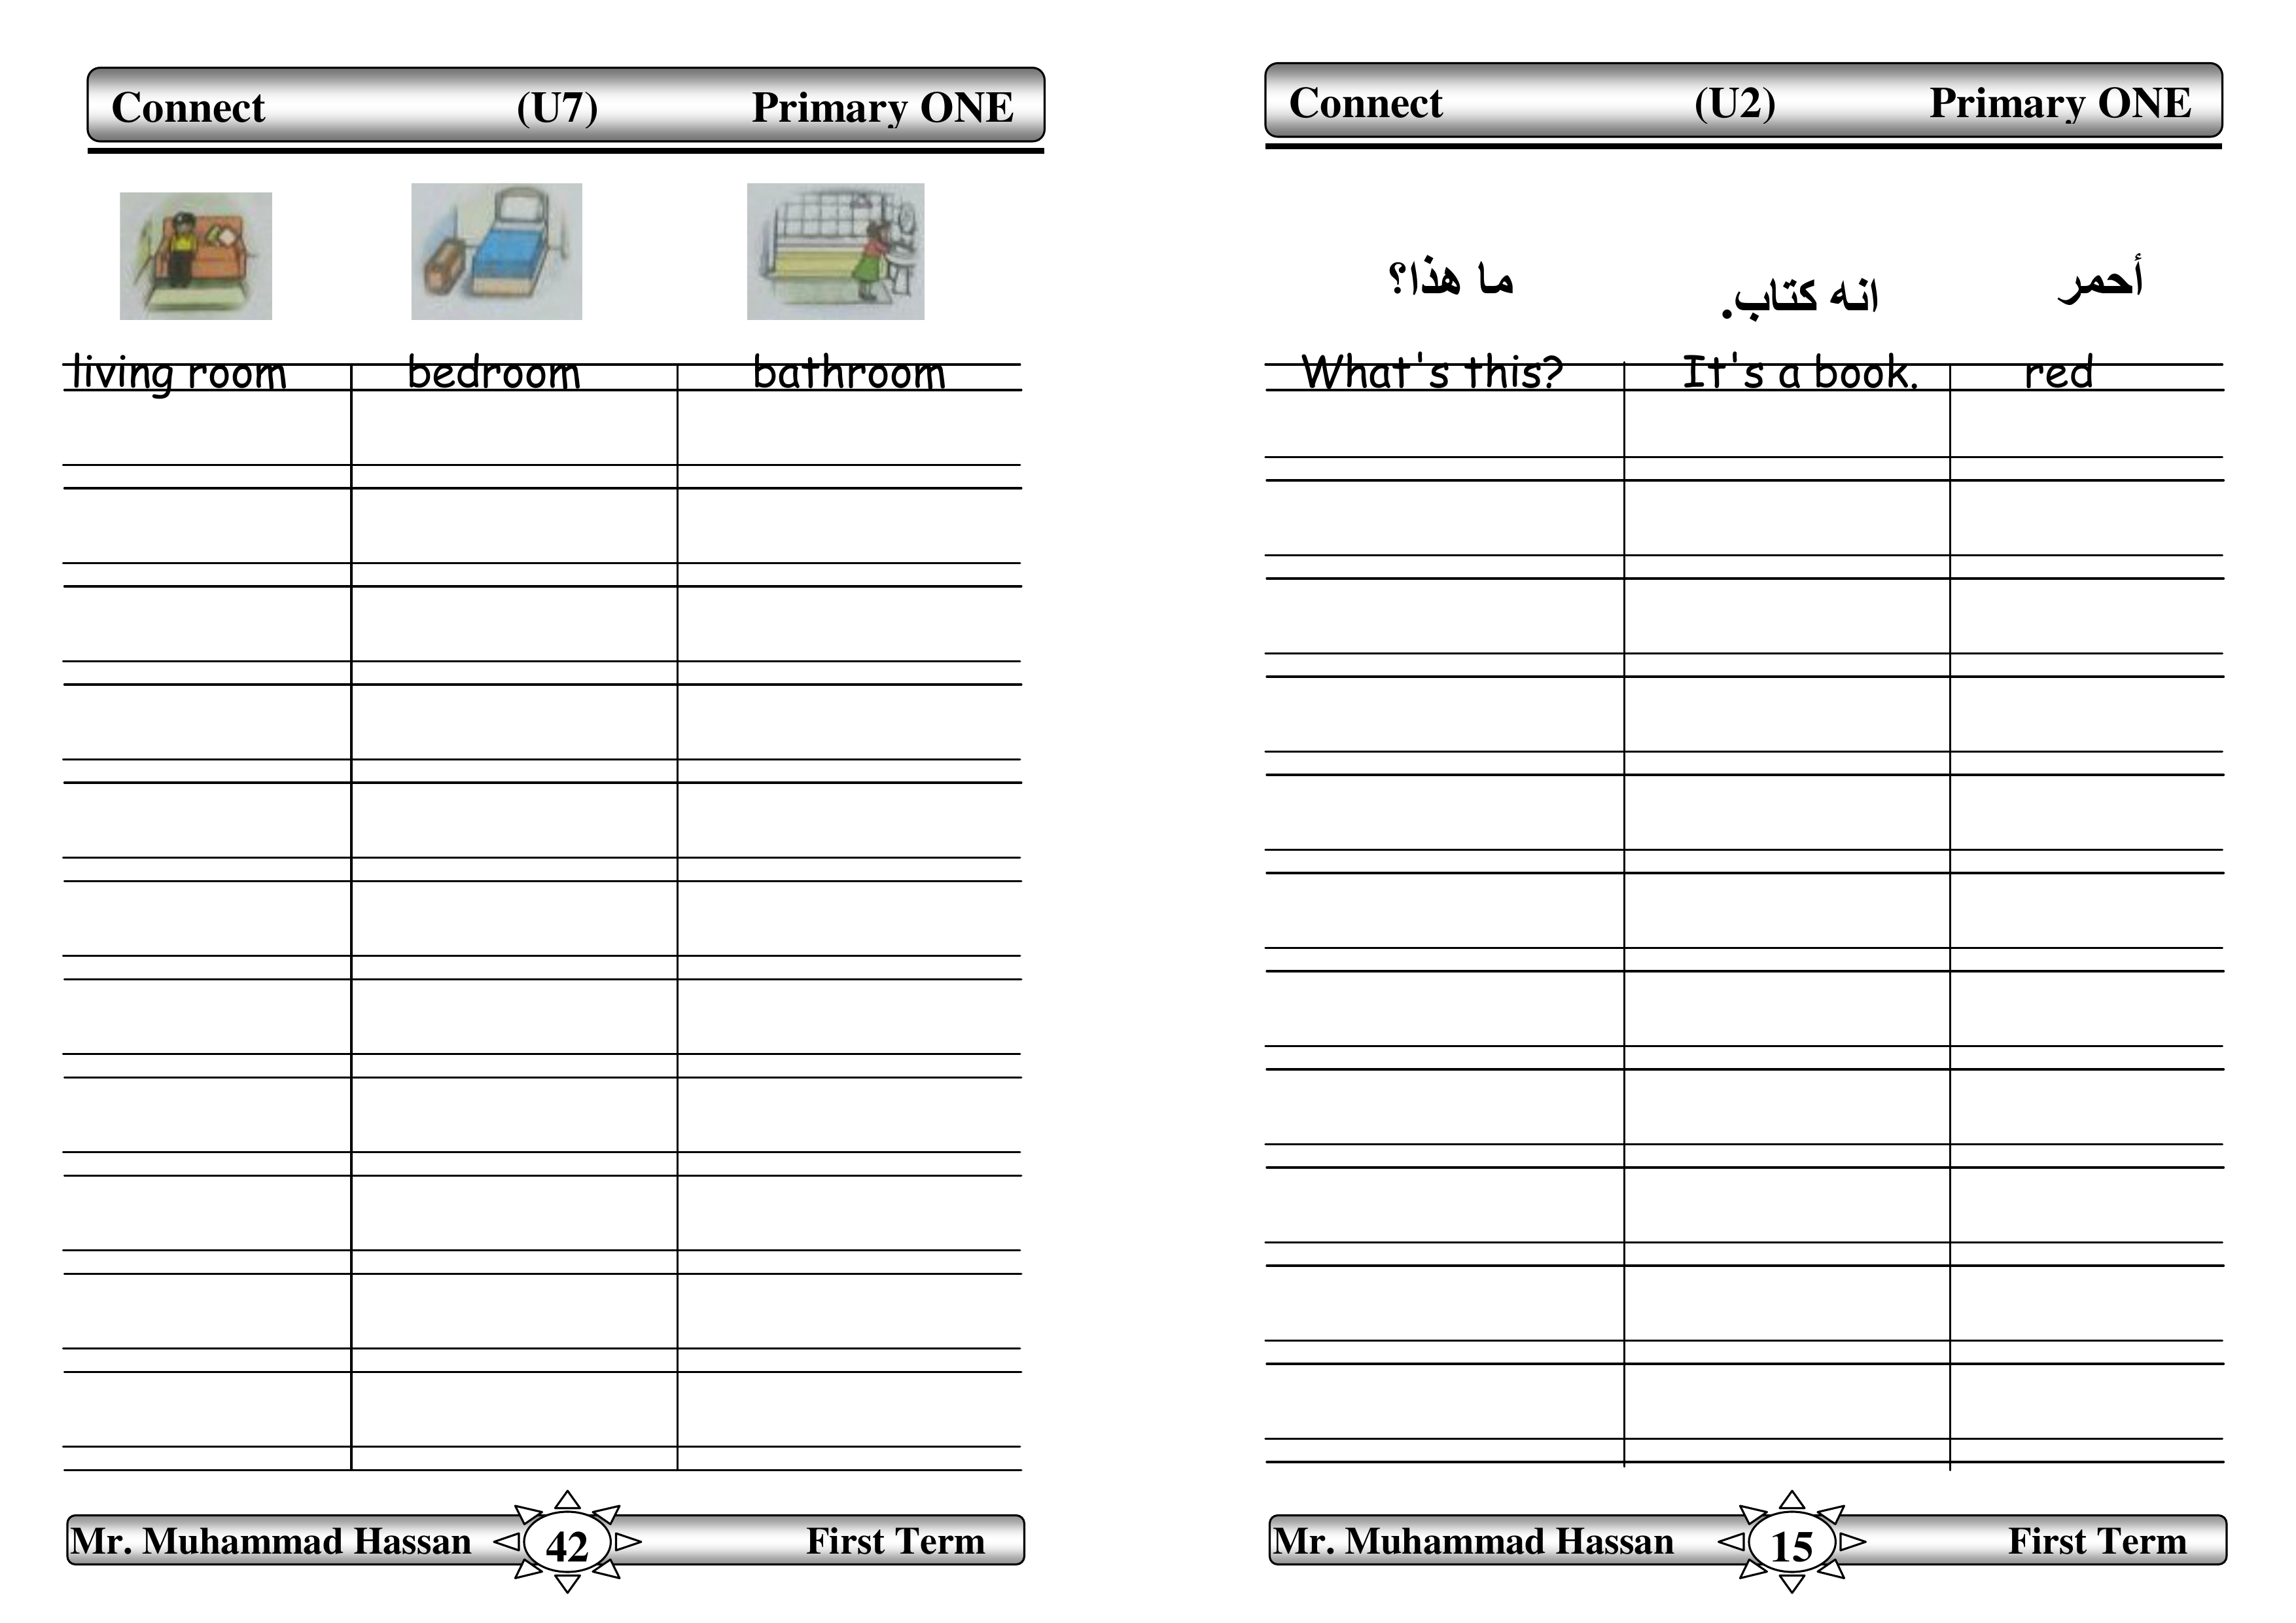 Connect (U7) Primary ONE
living room bedroom bathroom
Mr. Muhammad Hassan 42 First Term
Connect (U2) Primary ONE
ما هذا؟ انه كتاب. أحمر
What's this? It's a book. red
Mr. Muhammad Hassan 15 First Term